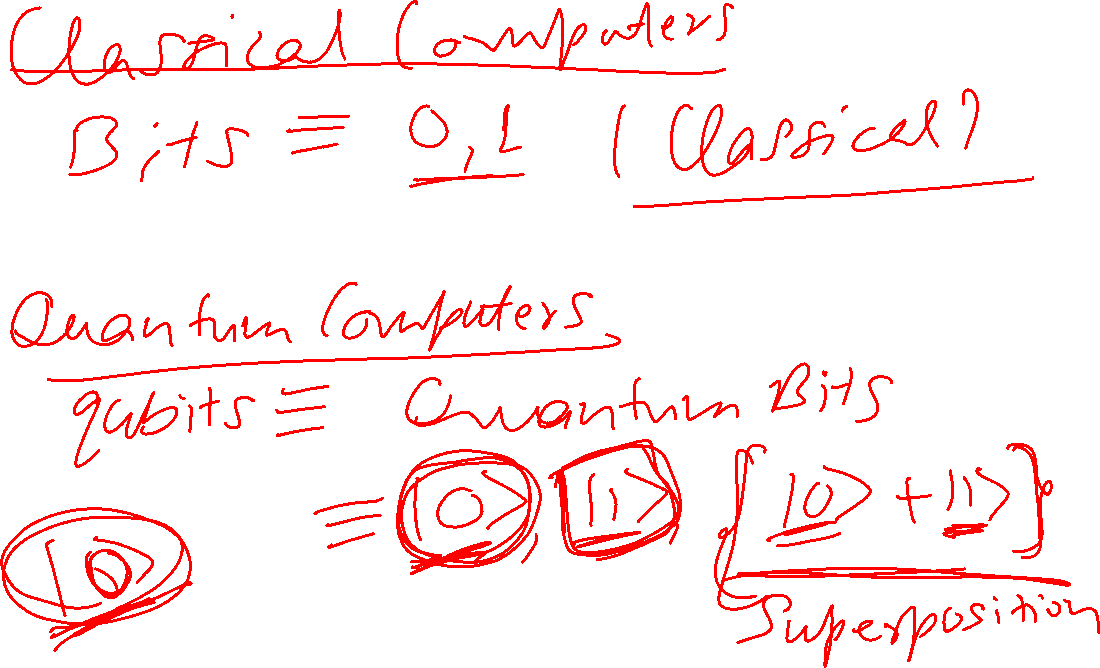 Classical Computers
Bits ≡ 0, 1 (Classical)
Quantum Computers
qubits ≡ Quantum Bits
≡ |0> |1> [|0> + |1>]
|0>
Superposition